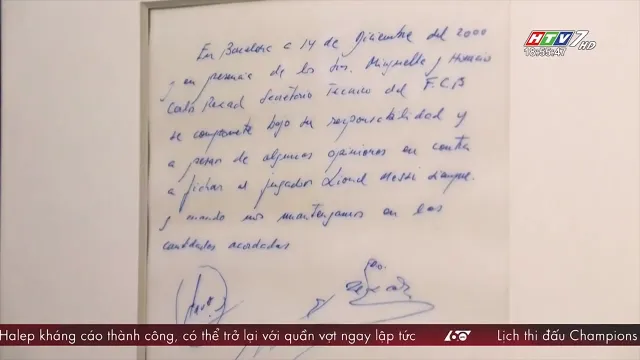 HTV7 HD
18:55:47
En Barcelona a 14 de Diciembre del 2000
y en presencia de los Srs. Minguella y Horacio
Carles Rexach Secretario Tecnico del F.C.B
se compromete bajo su responsabilidad y
a pesar de algunas opiniones en contra
a fichar al jugador Lionel Messi siempre
y cuando nos mantengamos en las
cantidades acordadas
Halep kháng cáo thành công, có thể trở lại với quần vợt ngay lập tức
60
Lịch thi đấu Champions